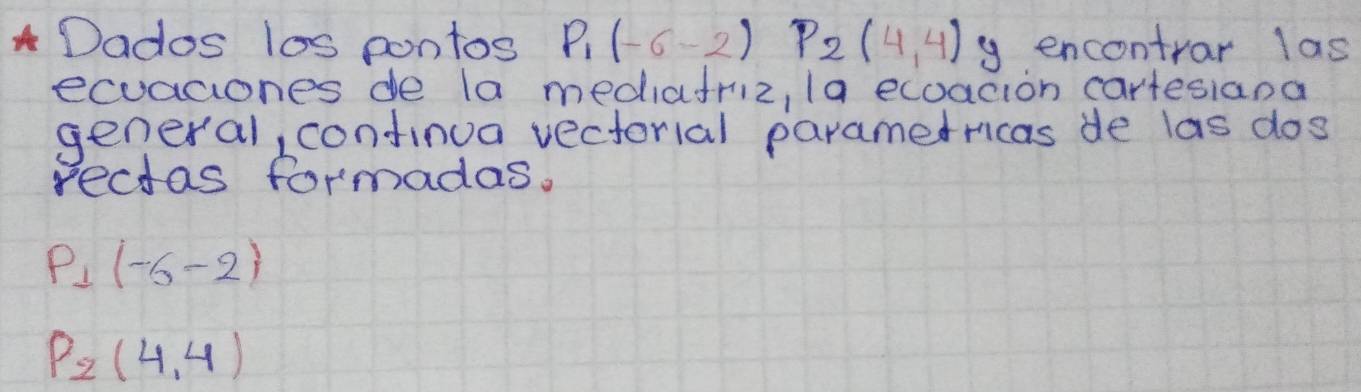 * Dados los pontos P₁(-6-2) P₂(4,4) y encontrar las
ecuaciones de la mediatriz, la ecoación cartesiana
general, continua vectorial parametricas de las dos
rectas formadas.
P₁(-6-2)
P₂(4,4)